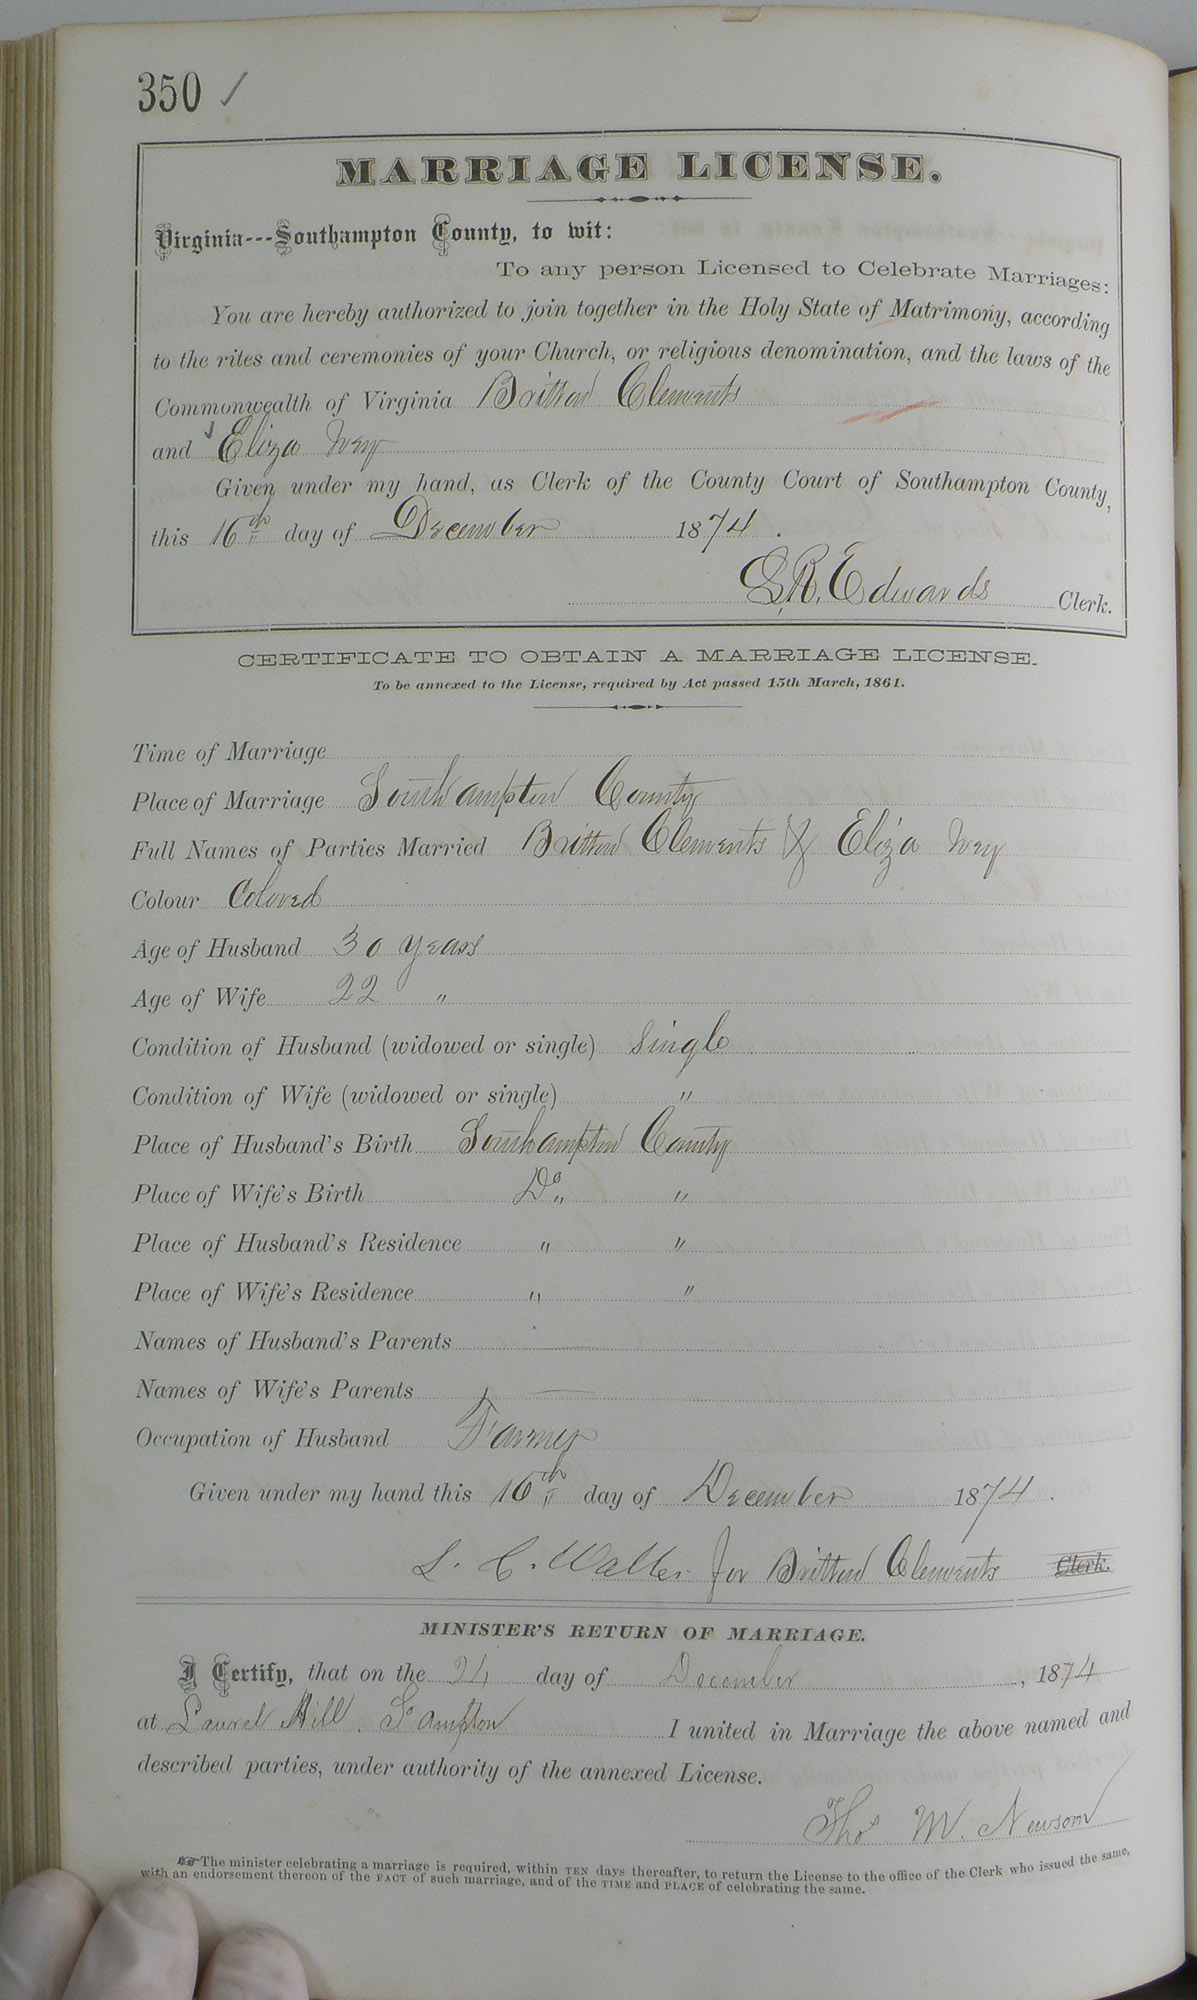 350 ✓
MARRIAGE LICENSE.
Virginia---Southampton County, to wit:
To any person Licensed to Celebrate Marriages:
You are hereby authorized to join together in the Holy State of Matrimony, according
to the rites and ceremonies of your Church, or religious denomination, and the laws of the
Commonwealth of Virginia Britton Clements
and Eliza Ivey
Given under my hand, as Clerk of the County Court of Southampton County,
this 16th day of December 1874.
L.R. Edwards Clerk.
CERTIFICATE TO OBTAIN A MARRIAGE LICENSE.
To be annexed to the License, required by Act passed 15th March, 1861.
Time of Marriage
Place of Marriage Southampton County
Full Names of Parties Married Britton Clements & Eliza Ivey
Colour Colored
Age of Husband 30 years
Age of Wife 22 "
Condition of Husband (widowed or single) Single
Condition of Wife (widowed or single) "
Place of Husband's Birth Southampton County
Place of Wife's Birth Do " "
Place of Husband's Residence " "
Place of Wife's Residence " "
Names of Husband's Parents —
Names of Wife's Parents —
Occupation of Husband Farmer
Given under my hand this 16th day of December 1874.
L. C. Waller for Britton Clements Clerk.
MINISTER'S RETURN OF MARRIAGE.
I Certify, that on the 24 day of December, 1874
at Laurel Hill. S'ampton I united in Marriage the above named and
described parties, under authority of the annexed License.
Thos M. Newsom
☞ The minister celebrating a marriage is required, within TEN days thereafter, to return the License to the office of the Clerk who issued the same,
with an endorsement thereon of the FACT of such marriage, and of the TIME and PLACE of celebrating the same.